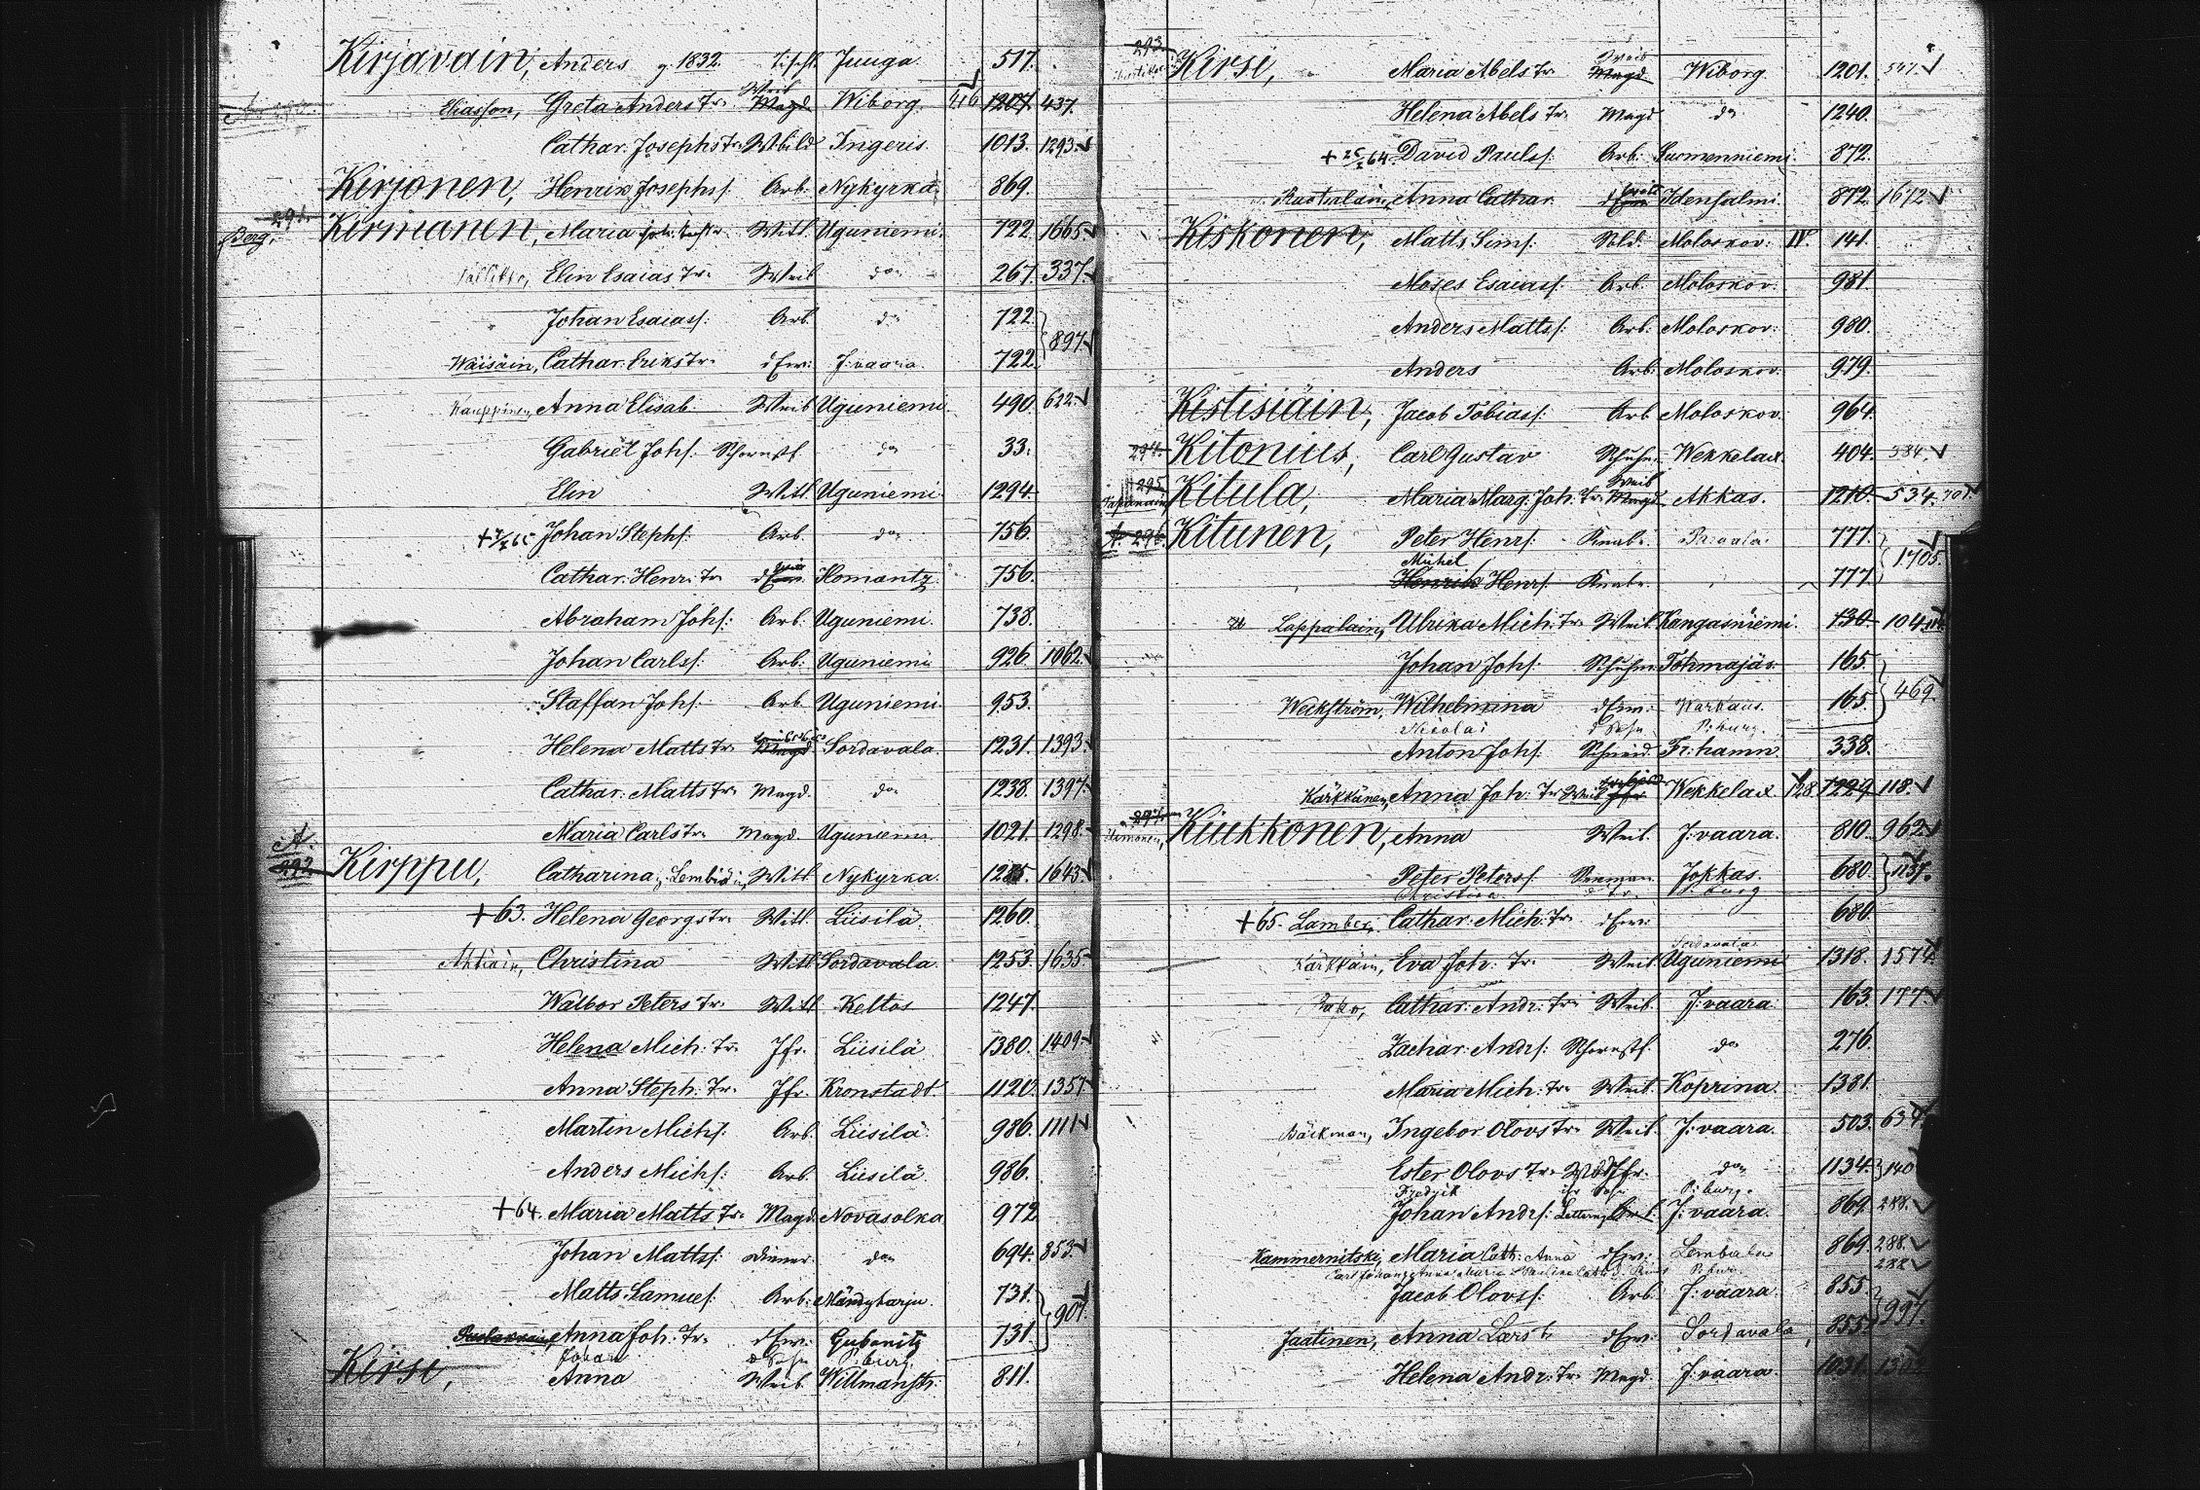 Kirjavain, Anders g. 1832. Tischl. Juuga. 517.
Weib
Eliasson, Greta Anders Tr. Magd Wiborg. 416 1207. 437.
Cathar. Josephs Tr. Ingeris. 1013. 1293.
Kirjonen, Henrik Josephs/. Arb. Nykyrka. 869.
291.
Berg, Kirmanen, Maria Witt. Uguniemi. 722 1665.
Elin Esaias Tr. Weib do 267. 337.
Johan Esaias/. Arb. do 722.
897
Wäisäin, Cathar. Eriks Tr. d. Frau: J:vaara. 722.
Kauppinen, Anna Elisab. Weib Uguniemi. 490. 622.
Gabriel Johs/. Schornstf. do 33.
Elin Witt. Uguniemi. 1294.
Johan Stephs/. Arb. do 756.
Cathar. Henr. Tr. Ilomantz. 756.
Abraham Johs/. Arb. Uguniemi. 738.
Johan Carls/. Arb. Uguniemi. 926. 1062.
Staffan Johs/. Arb. Uguniemi. 953.
Helena Matts Tr. Magd Sordavala. 1231. 1393.
Cathar. Matts Tr. Magd. do 1238. 1397.
Maria Carls Tr. Magd. Uguniemi. 1021. 1298.
A.
292. Kirppu, Catharina, Witt. Nykyrka. 1285. 1643.
+63. Helena Georgs Tr. Witt. Liisilä. 1260.
Christina Witt. Sordavala. 1253. 1635
Walbor Peters Tr. Witt. Keltos. 1247.
Helena Mich. Tr. Jfr. Liisilä. 1380. 1409
Anna Steph. Tr. Jfr. Kronstadt. 1120. 1357
Martin Michs/. Arb. Liisilä. 986. 1111
Anders Michs/. Arb. Liisilä. 986.
+64. Maria Matts Tr. Magd. Novasolka. 972.
Johan Matts/. Diener. do 694. 853.
Matts Samuels/. Arb. 731.
907.
Anna Joh. Tr. d. Frau: Gubanitz 731.
Johan d Sohn P:burg.
Kirse, Anna Weib Willmanstr. 811.
293. Weib
Kirsi, Maria Abels Tr. Magd Wiborg. 1201. 547.
Helena Abels Tr. Magd do 1240.
David Pauls/. Arb. Suomenniemi. 872.
Anna Cathar. Idensalmi. 872. 1672
Kiskonen, Matts Sims/. Sold. Moloskov. IV. 141.
Moses Esaias/. Arb. Moloskov. 981.
Anders Matts/. Arb. Moloskov. 980.
Anders Arb. Moloskov. 979.
Kistisiäin, Jacob Tobias/. Arb. Moloskov. 964.
294. Kitonius, Carl Gustav Schuhm. Wekkelax. 404. 534.
295. Weib
Kitula, Maria Marg. Joh. Tr. Magd Akkas. 1210. 534.
A. 296. Kitunen, Peter Henrs/. Knabe. 777.
Michel 1705.
Henrik Henrs/. Knabe 777.
Lappalain, Ulrika Mich. Tr. Weib. Kangasniemi. 130. 104
Johan Johs/. Schuhm. Tohmajär. 165.
469.
Weckström, Wilhelmina d. Frau: Warkaus. 165.
Nicolai d Sohn P:burg.
Anton Johs/. Schneid. Fr:hamn. 338.
Kärkkänen, Anna Joh. Tr. Weib Wekkelax 128 1229 118.
297.
Kiukkonen, Anna Weib. J:vaara. 810. 962
Peter Peters/. Jokkas. 680. 1137.
Christina d Tr. burg
+65. Lamberg, Cathar. Mich. Tr. d. Frau: 680.
Sordavala
Kärkkäin, Eva Joh. Tr. Weib. Uguniemi 1318. 1574
Cathar. Andr. Tr. Weib. J:vaara. 163. 177
Zachar. Andrs/. Schornstf. do 276.
Maria Mich. Tr. Weib. Koprina. 1381.
Bäckman, Ingebor Olovs Tr. Weib. J:vaara. 503. 634.
Ester Olovs Tr. Jfr. do 1134. 140
Fredrik ihr Sohn P:burg.
Johan Andrs/. J:vaara. 869. 288.
Kammernitski, Maria Cath. Anna d. Frau: Lembala 869. 288.
288
Jacob Olovs/. Arb. J:vaara. 855.
997.
Jaatinen, Anna Lars Tr. d. Frau: Sordavala, 855.
Helena Andr. Tr. Magd. J:vaara. 1031. 1303.